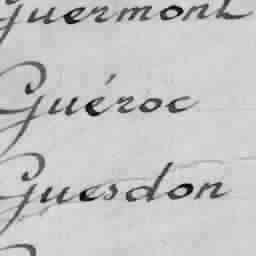 Guermont
Guéroc
Guesdon